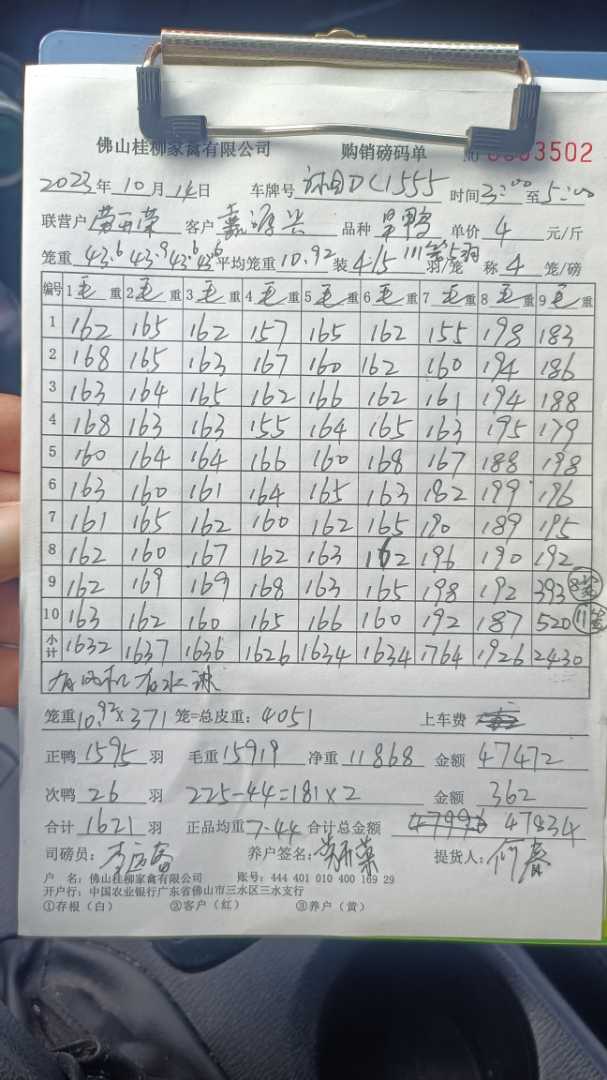 佛山桂柳家禽有限公司 购销磅码单 No 0003502
2023年10月14日 车牌号 DC1555 时间3:00至5:00
联营户 客户 嘉源兴 品种 单价 4 元/斤
笼重 43.6 43.9 43.6 43.6 平均笼重 10.92 装 4.15 羽/笼 称 4 笼/磅
编号 1毛重 2毛重 3毛重 4毛重 5毛重 6毛重 7毛重 8毛重 9毛重
1 162 165 162 157 165 162 155 198 183
2 168 165 163 167 160 162 160 194 186
3 163 164 165 162 166 162 161 194 188
4 168 163 163 155 164 165 163 195 179
5 160 164 164 166 160 168 167 188 198
6 163 160 161 164 165 163 182 199 196
7 161 165 162 160 162 165 190 189 195
8 162 160 167 162 163 162 196 190 192
9 162 169 169 168 163 165 198 192 393 8笼
10 163 162 160 165 166 160 192 187 520 11笼
小计 1632 1637 1636 1626 1634 1634 1764 1926 2430
有风机有水淋
笼重10.92×371笼=总皮重:4051 上车费
正鸭 1595 羽 毛重 15919 净重 11868 金额 47472
次鸭 26 羽 225-44=181×2 金额 362
合计 1621 羽 正品均重 7-44 合计总金额 47834
司磅员: 养户签名: 提货人:
户 名:佛山桂柳家禽有限公司 账号:444 401 010 400 169 29
开户行:中国农业银行广东省佛山市三水区三水支行
①存根(白) ②客户(红) ③养户(黄)